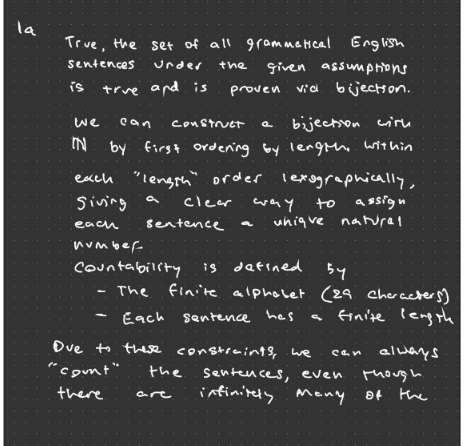 1a
True, the set of all grammatical English
sentences under the given assumptions
is true and is proven via bijection.
we can construct a bijection with
ℕ by first ordering by length. Within
each "length" order lexographically,
giving a clear way to assign
each sentence a unique natural
number.
Countability is defined by
- The finite alphabet (29 characters)
- Each sentence has a finite length
Due to these constraints, we can always
"count" the sentences, even though
there are infinitely many of the